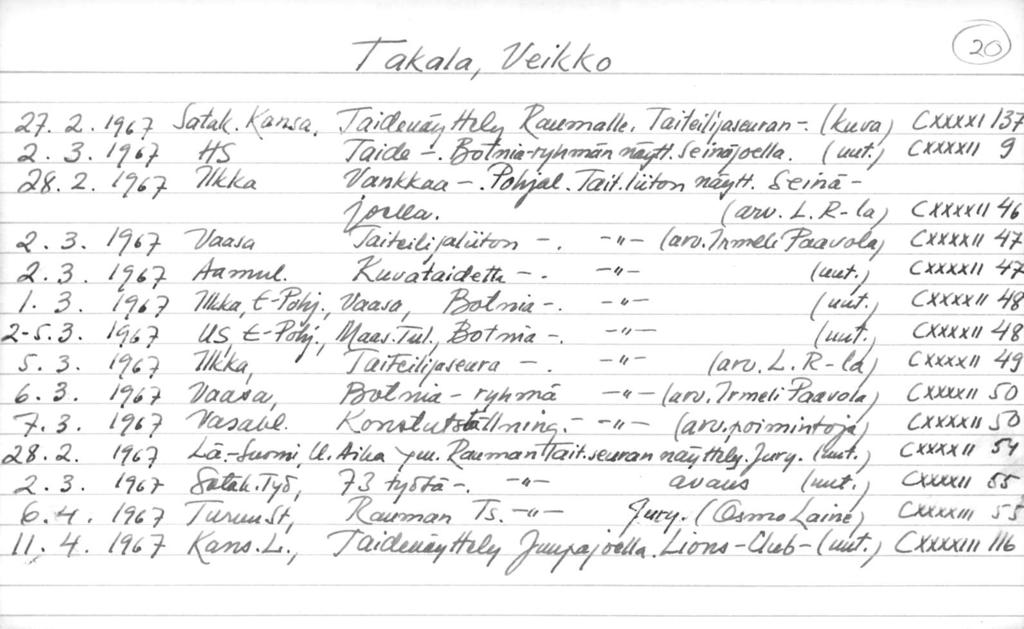 20
Takala, Veikko
27. 2. 1967 Satak. Kansa, Taidenäyttely Raumalle. Taiteilijaseuran -. (kuva) CXXXXI 137
2. 3. 1967 HS Taide -. Botnia-ryhmän näytt. Seinäjoella. (uut.) CXXXXII 9
28. 2. 1967 Ilkka Vankkaa -. Pohjal. Tait.liiton näytt. Seinä-
joella. (arv. L. R-la) CXXXXII 46
2. 3. 1967 Vaasa Taiteilijaliiton -. -"- (arv. Irmeli Paavola) CXXXXII 47
2. 3. 1967 Aamul. Kuvataidetta -. -"- (uut.) CXXXXII 47
1. 3. 1967 Ilkka, E-Pohj., Vaasa, Botnia -. -"- (uut.) CXXXXII 48
2-5. 3. 1967 US, E-Pohj., Maas.Tul., Botnia -. -"- (uut.) CXXXXII 48
5. 3. 1967 Ilkka, Taiteilijaseura -. -"- (arv. L. R-la) CXXXXII 49
6. 3. 1967 Vaasa, Botnia-ryhmä -"- (arv. Irmeli Paavola) CXXXXII 50
7. 3. 1967 Vasabl. Konstutställning. - -"- (arv. poimintoja) CXXXXII 50
28. 2. 1967 Lä-Suomi, U. Aika ym. Rauman Tait.seuran näyttely. Jury. (uut.) CXXXXII 54
2. 3. 1967 Satak. Työ, 73 työtä -. -"- avaus (uut.) CXXXXII 55
6. 4. 1967 Turun St, Rauman Ts. -"- Jury. (Osmo Laine) CXXXXIII 55
11. 4. 1967 Kans. L., Taidenäyttely Juupajoella. Lions-Club - (uut.) CXXXXIII 116